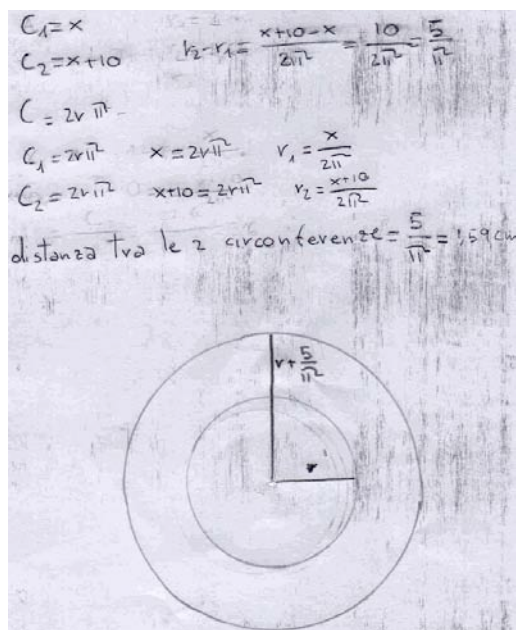 C₁=x
C₂=x+10
r₂-r₁= x+10-x/2π = 10/2π = 5/π
C = 2rπ
C₁ = 2rπ x = 2rπ r₁ = x/2π
C₂ = 2rπ x+10 = 2rπ r₂ = x+10/2π
distanza tra le 2 circonferenze = 5/π = 1,59 cm
r + 5/π
r